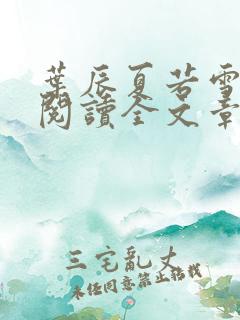 葉辰夏若雪
閱讀全文章
三宅亂丈
未經同意禁止轉載